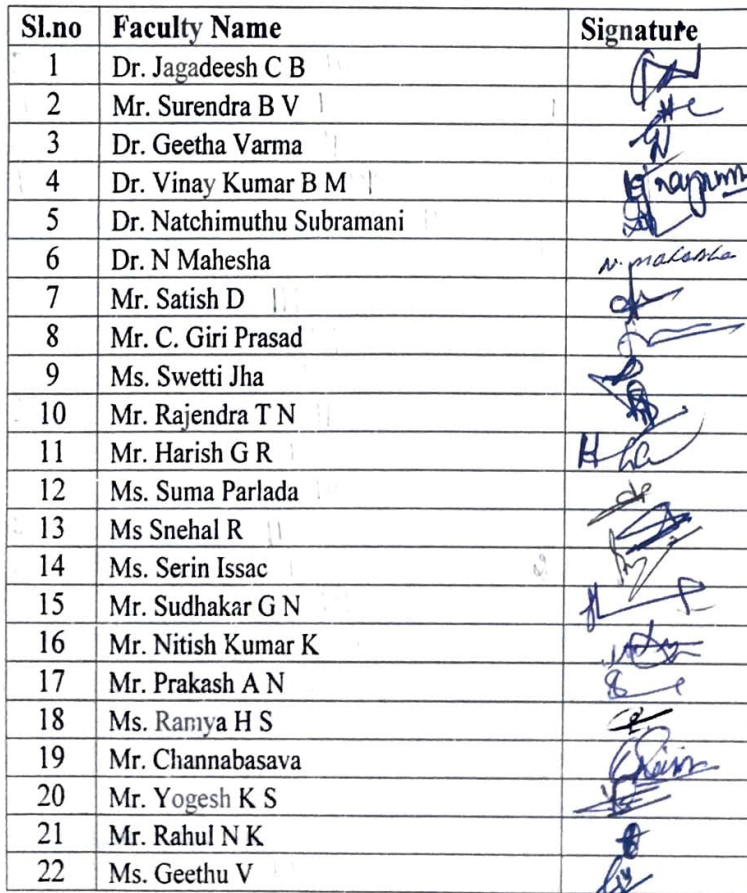 Sl.no Faculty Name Signature
1 Dr. Jagadeesh C B
2 Mr. Surendra B V
3 Dr. Geetha Varma
4 Dr. Vinay Kumar B M
5 Dr. Natchimuthu Subramani
6 Dr. N Mahesha
7 Mr. Satish D
8 Mr. C. Giri Prasad
9 Ms. Swetti Jha
10 Mr. Rajendra T N
11 Mr. Harish G R
12 Ms. Suma Parlada
13 Ms Snehal R
14 Ms. Serin Issac
15 Mr. Sudhakar G N
16 Mr. Nitish Kumar K
17 Mr. Prakash A N
18 Ms. Ramya H S
19 Mr. Channabasava
20 Mr. Yogesh K S
21 Mr. Rahul N K
22 Ms. Geethu V